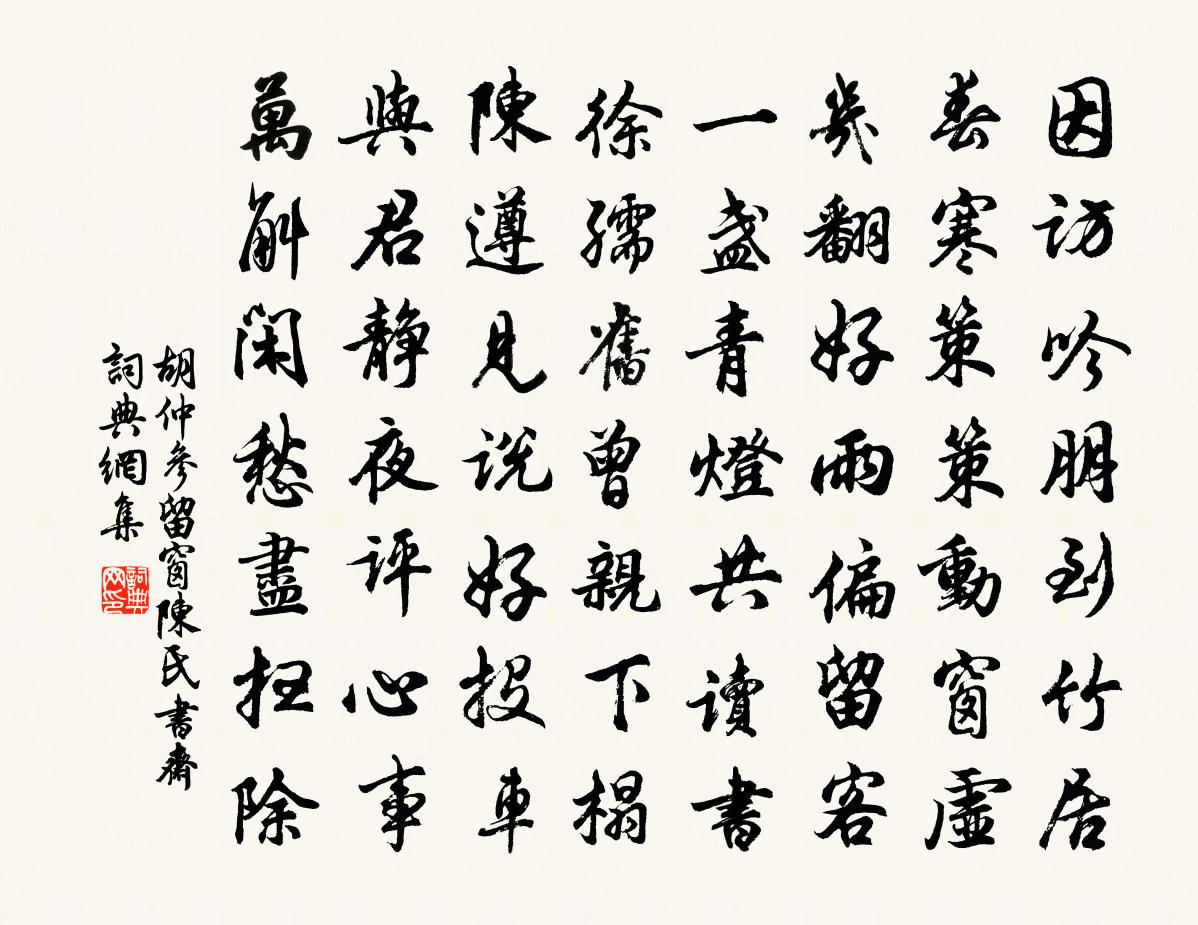 因訪吟朋到竹居
春寒策策動窗虛
幾翻好雨偏留客
一盞青燈共讀書
徐孺舊曾親下榻
陳遵見說好投車
與君靜夜評心事
萬斛閑愁盡掃除
胡仲參留窗陳民書齋
詞典網集
詞典網印